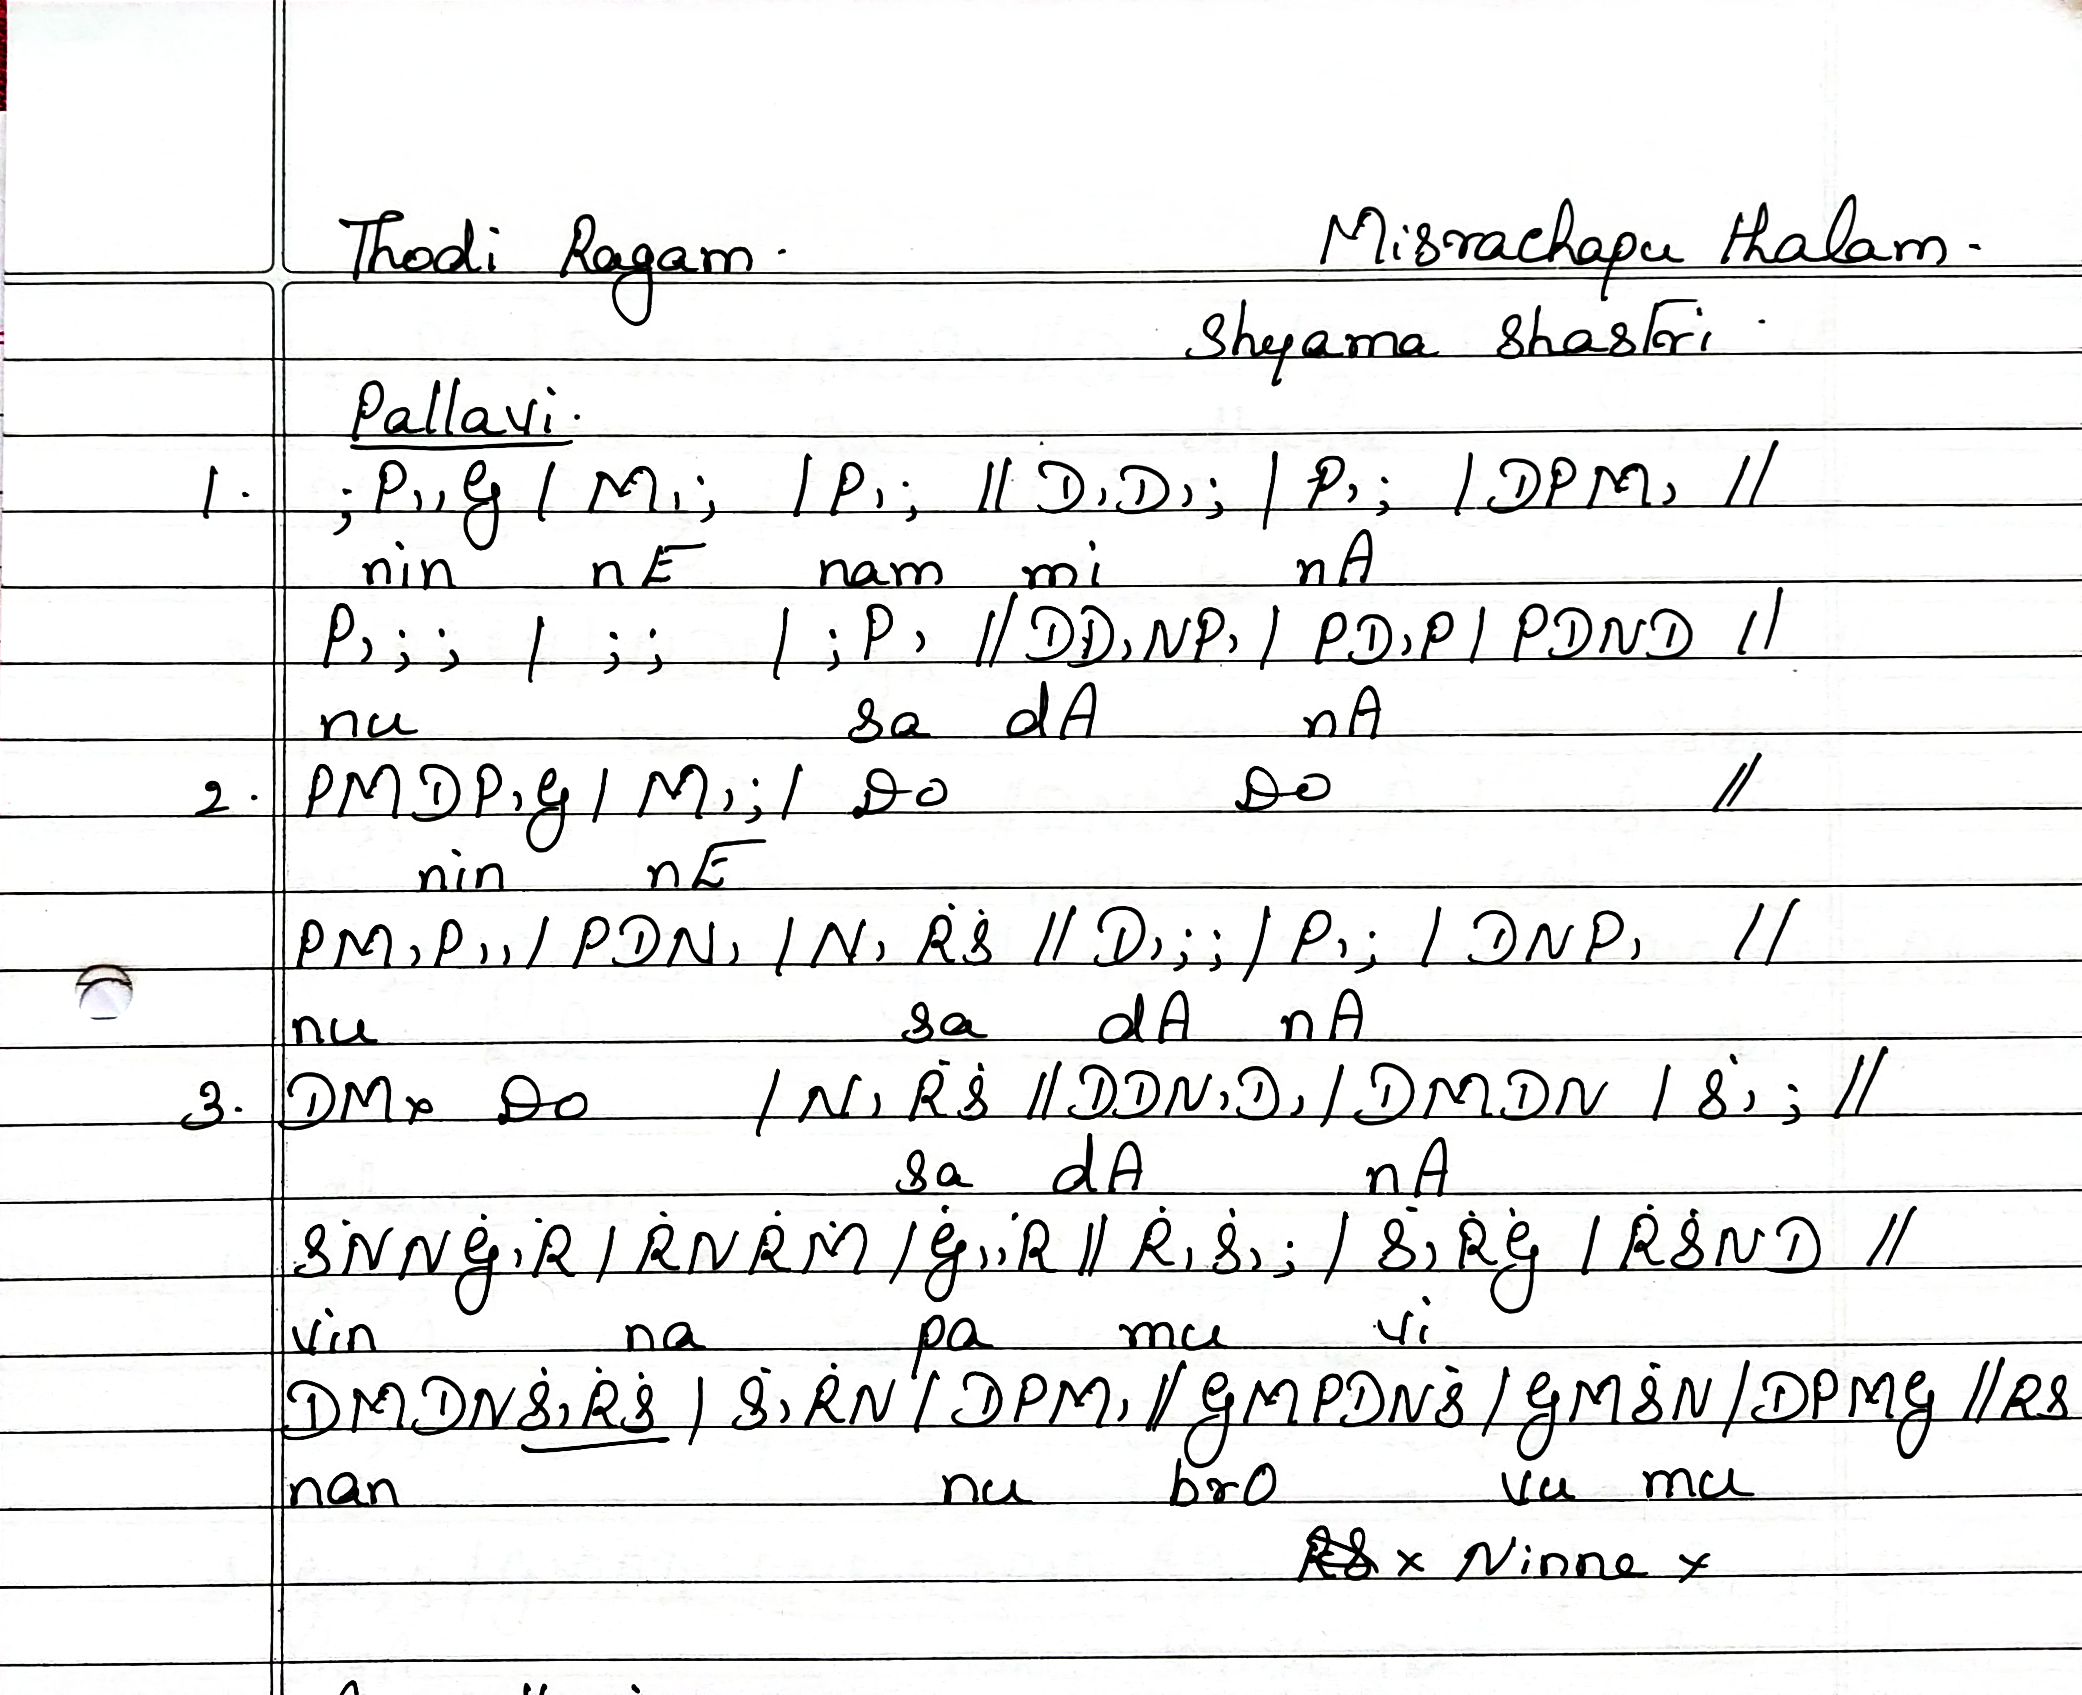 Thodi Ragam. Misrachapu thalam.
Shyama Shastri.
Pallavi.
1. ; P,, G / M, ; / P, ; // D, D, ; / P, ; / DPM, //
nin nE nam mi nA
P, ; ; / ; ; / ; P, // DD, NP, / PD, P / PDND //
nu sa dA nA
2. PMDP, G / M, ; / Do Do //
nin nE
PM, P,, / PDN, / N, ṘṠ // D, ; ; / P, ; / DNP, //
nu sa dA nA
3. DMx Do / N, ṘṠ // DDN, D, / DMDN / Ṡ, ; //
sa dA nA
ṠNNĠ, Ṙ / ṘNṘṀ / Ġ,, Ṙ // Ṙ, Ṡ, ; / Ṡ, ṘĠ / ṘṠND //
vin na pa mu vi
DMDNṠ, ṘṠ / Ṡ, ṘN / DPM, // GMPDNṠ / GMṠN / DPMG // RS
nan nu brO vu mu
x Ninne x